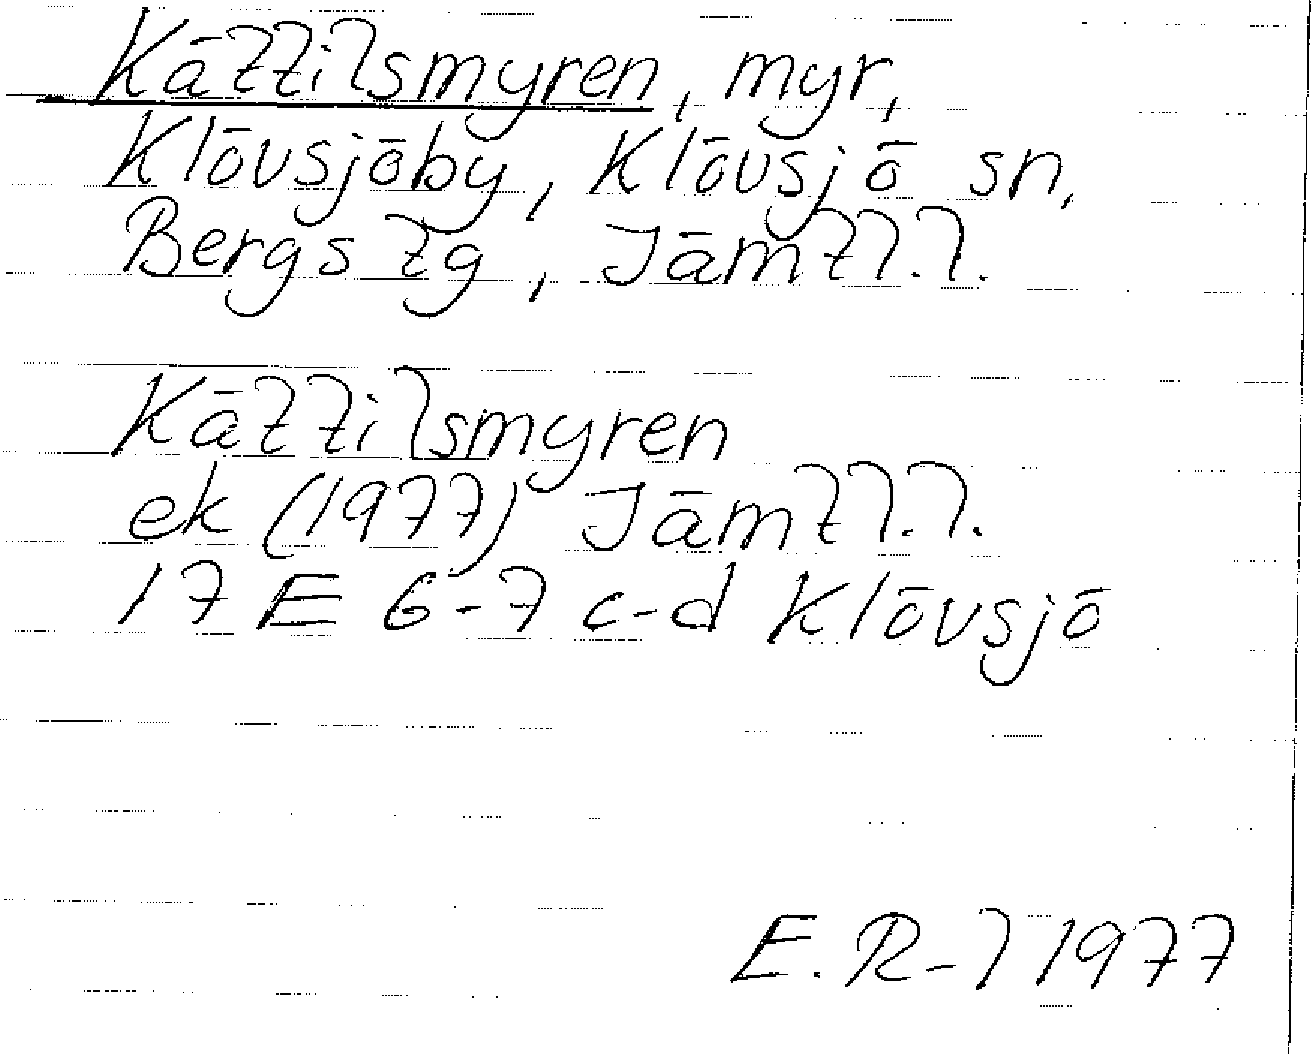 Kättilsmyren, myr,
Klövsjöby, Klövsjö sn,
Bergs tg, Jämtl.l.
Kättilsmyren
ek (1977) Jämtl.l.
17 E 6-7 c-d Klövsjö
E. R-l 1977